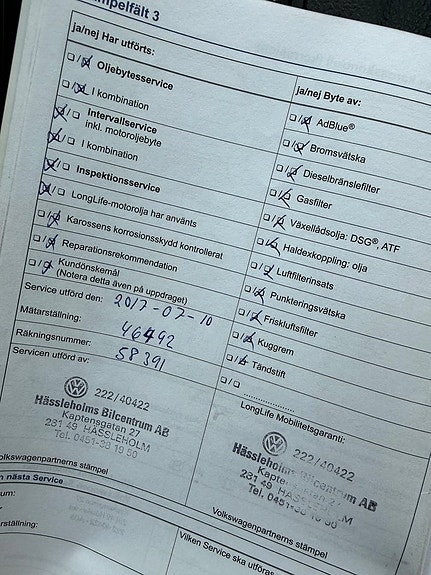 mpelfält 3
ja/nej Har utförts:
Oljebytesservice
I kombination
Intervallservice
inkl. motoroljebyte
I kombination
Inspektionsservice
LongLife-motorolja har använts
Karossens korrosionsskydd kontrollerat
Reparationsrekommendation
Kundönskemål
(Notera detta även på uppdraget)
Service utförd den: 2017-07-10
Mätarställning: 46492
Räkningsnummer: 58391
Servicen utförd av:
222/40422
Hässleholms Bilcentrum AB
Kaptensgatan 27
281 49 HÄSSLEHOLM
Tel. 0451-38 19 50
Volkswagenpartnerns stämpel
ja/nej Byte av:
AdBlue®
Bromsvätska
Dieselbränslefilter
Gasfilter
Växellådsolja: DSG®, ATF
Haldexkoppling: olja
Luftfilterinsats
Punkteringsvätska
Friskluftsfilter
Kuggrem
Tändstift
LongLife Mobilitetsgaranti:
222/40422
Hässleholms Bilcentrum AB
Tel. 0451-38 19 50
Volkswagenpartnerns stämpel
n nästa Service
um:
tarställning:
Vilken Service ska utföras